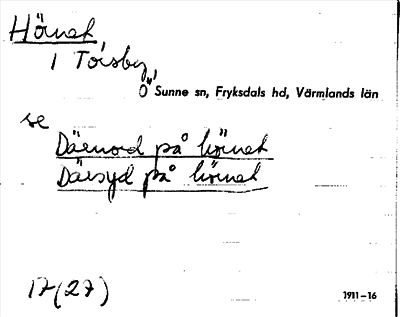 Hörnet,
i Torsby,
Ö Sunne sn, Fryksdals hd, Värmlands län
se
Därnord på hörnet
Därsyd på hörnet
17(27)
1911–16